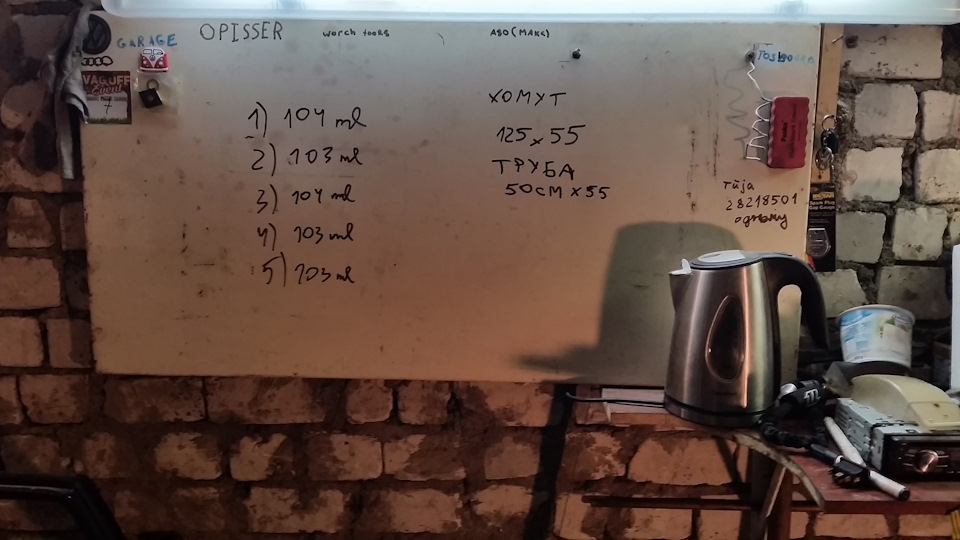 GARAGE
OPISSER
worch tools
ABO (МАКС)
VAG OFF
Event
7
1) 104 ml
2) 103 ml
3) 104 ml
4) 103 ml
5) 103 ml
ХОМУТ
125 x 55
ТРУБА
50СМ x 55
Tūja
28218501